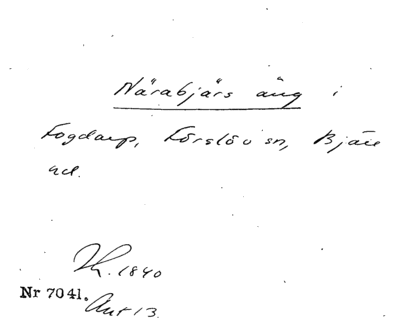 Närabjärs äng i
Fogdarp, Förslöv sn, Bjäre
hd.
Th. 1840
Nr 7041. Ant 13.